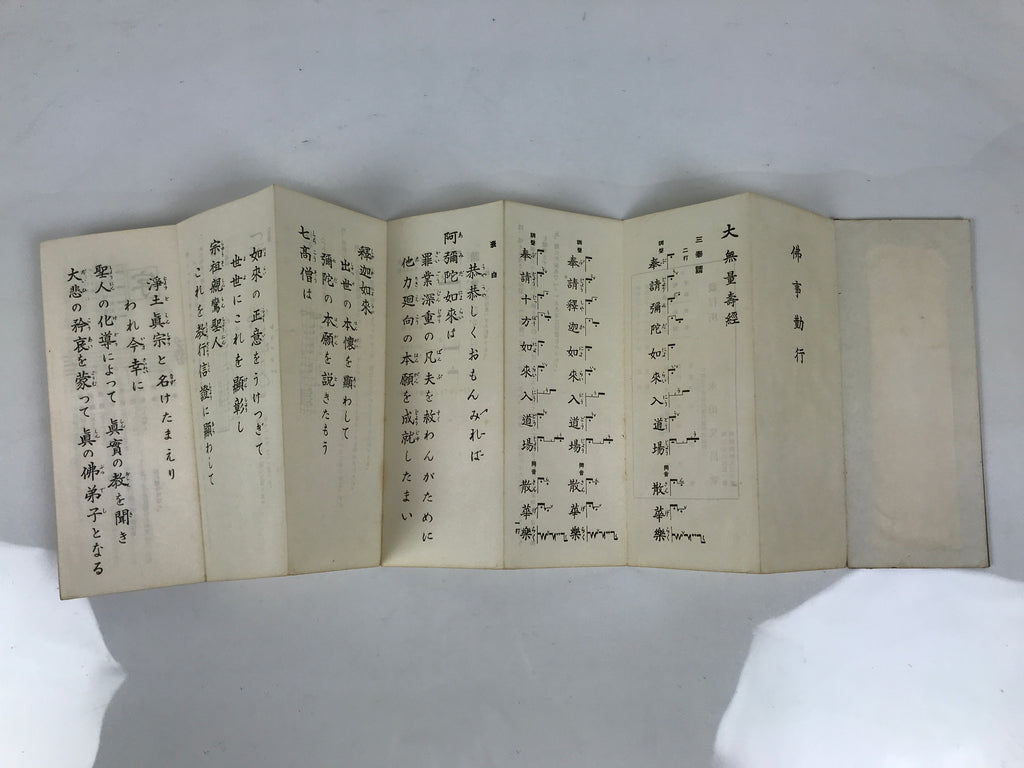 佛事勤行
大無量壽經
三奉請
奉請彌陀如來入道場 散華樂
調聲
奉請釋迦如來入道場 散華樂
調聲 同音
奉請十方如來入道場 散華樂
表白
恭恭しくおもんみれば
阿彌陀如來は
罪業深重の凡夫を救わんがために
他力廻向の本願を成就したまい
釋迦如來
出世の本懷を顯わして
彌陀の本願を説きたもう
七高僧は
如來の正意をうけつぎて
世世にこれを顯彰し
宗祖親鸞聖人
これを教行信證に顯わして
淨土眞宗と名けたまえり
われ今幸に
聖人の化導によって 眞實の教を聞き
大悲の矜哀を蒙って 眞の佛弟子となる